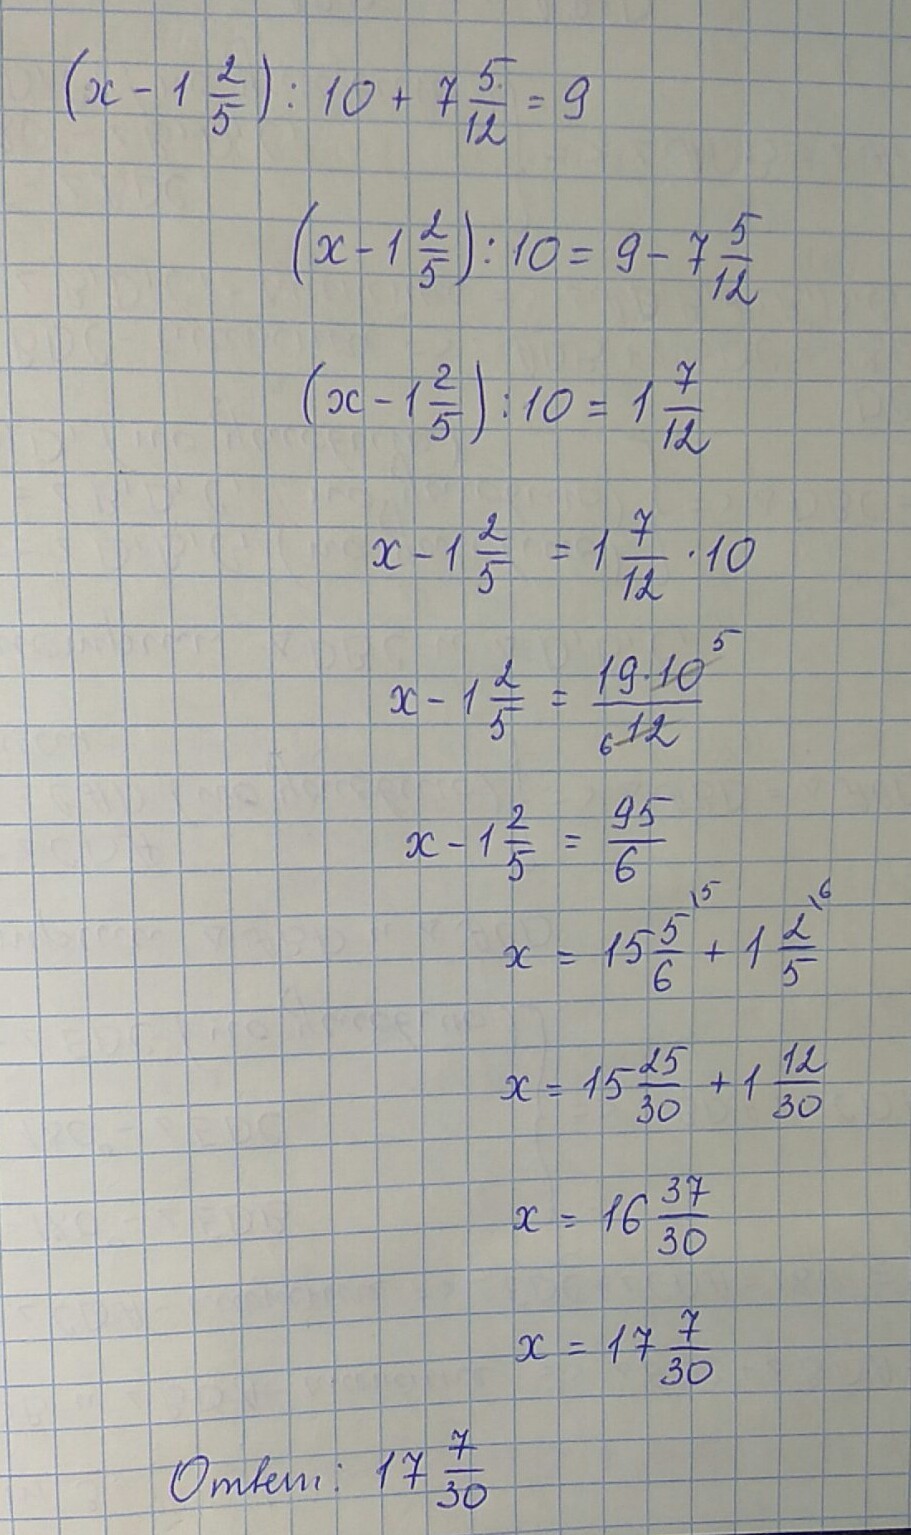 (x - 1 2/5) : 10 + 7 5/12 = 9
(x - 1 2/5) : 10 = 9 - 7 5/12
(x - 1 2/5) : 10 = 1 7/12
x - 1 2/5 = 1 7/12 · 10
x - 1 2/5 = 19 · 10 5 / 6 12
x - 1 2/5 = 95/6
x = 15 5/6 \5 + 1 2/5 \6
x = 15 25/30 + 1 12/30
x = 16 37/30
x = 17 7/30
Ответ: 17 7/30